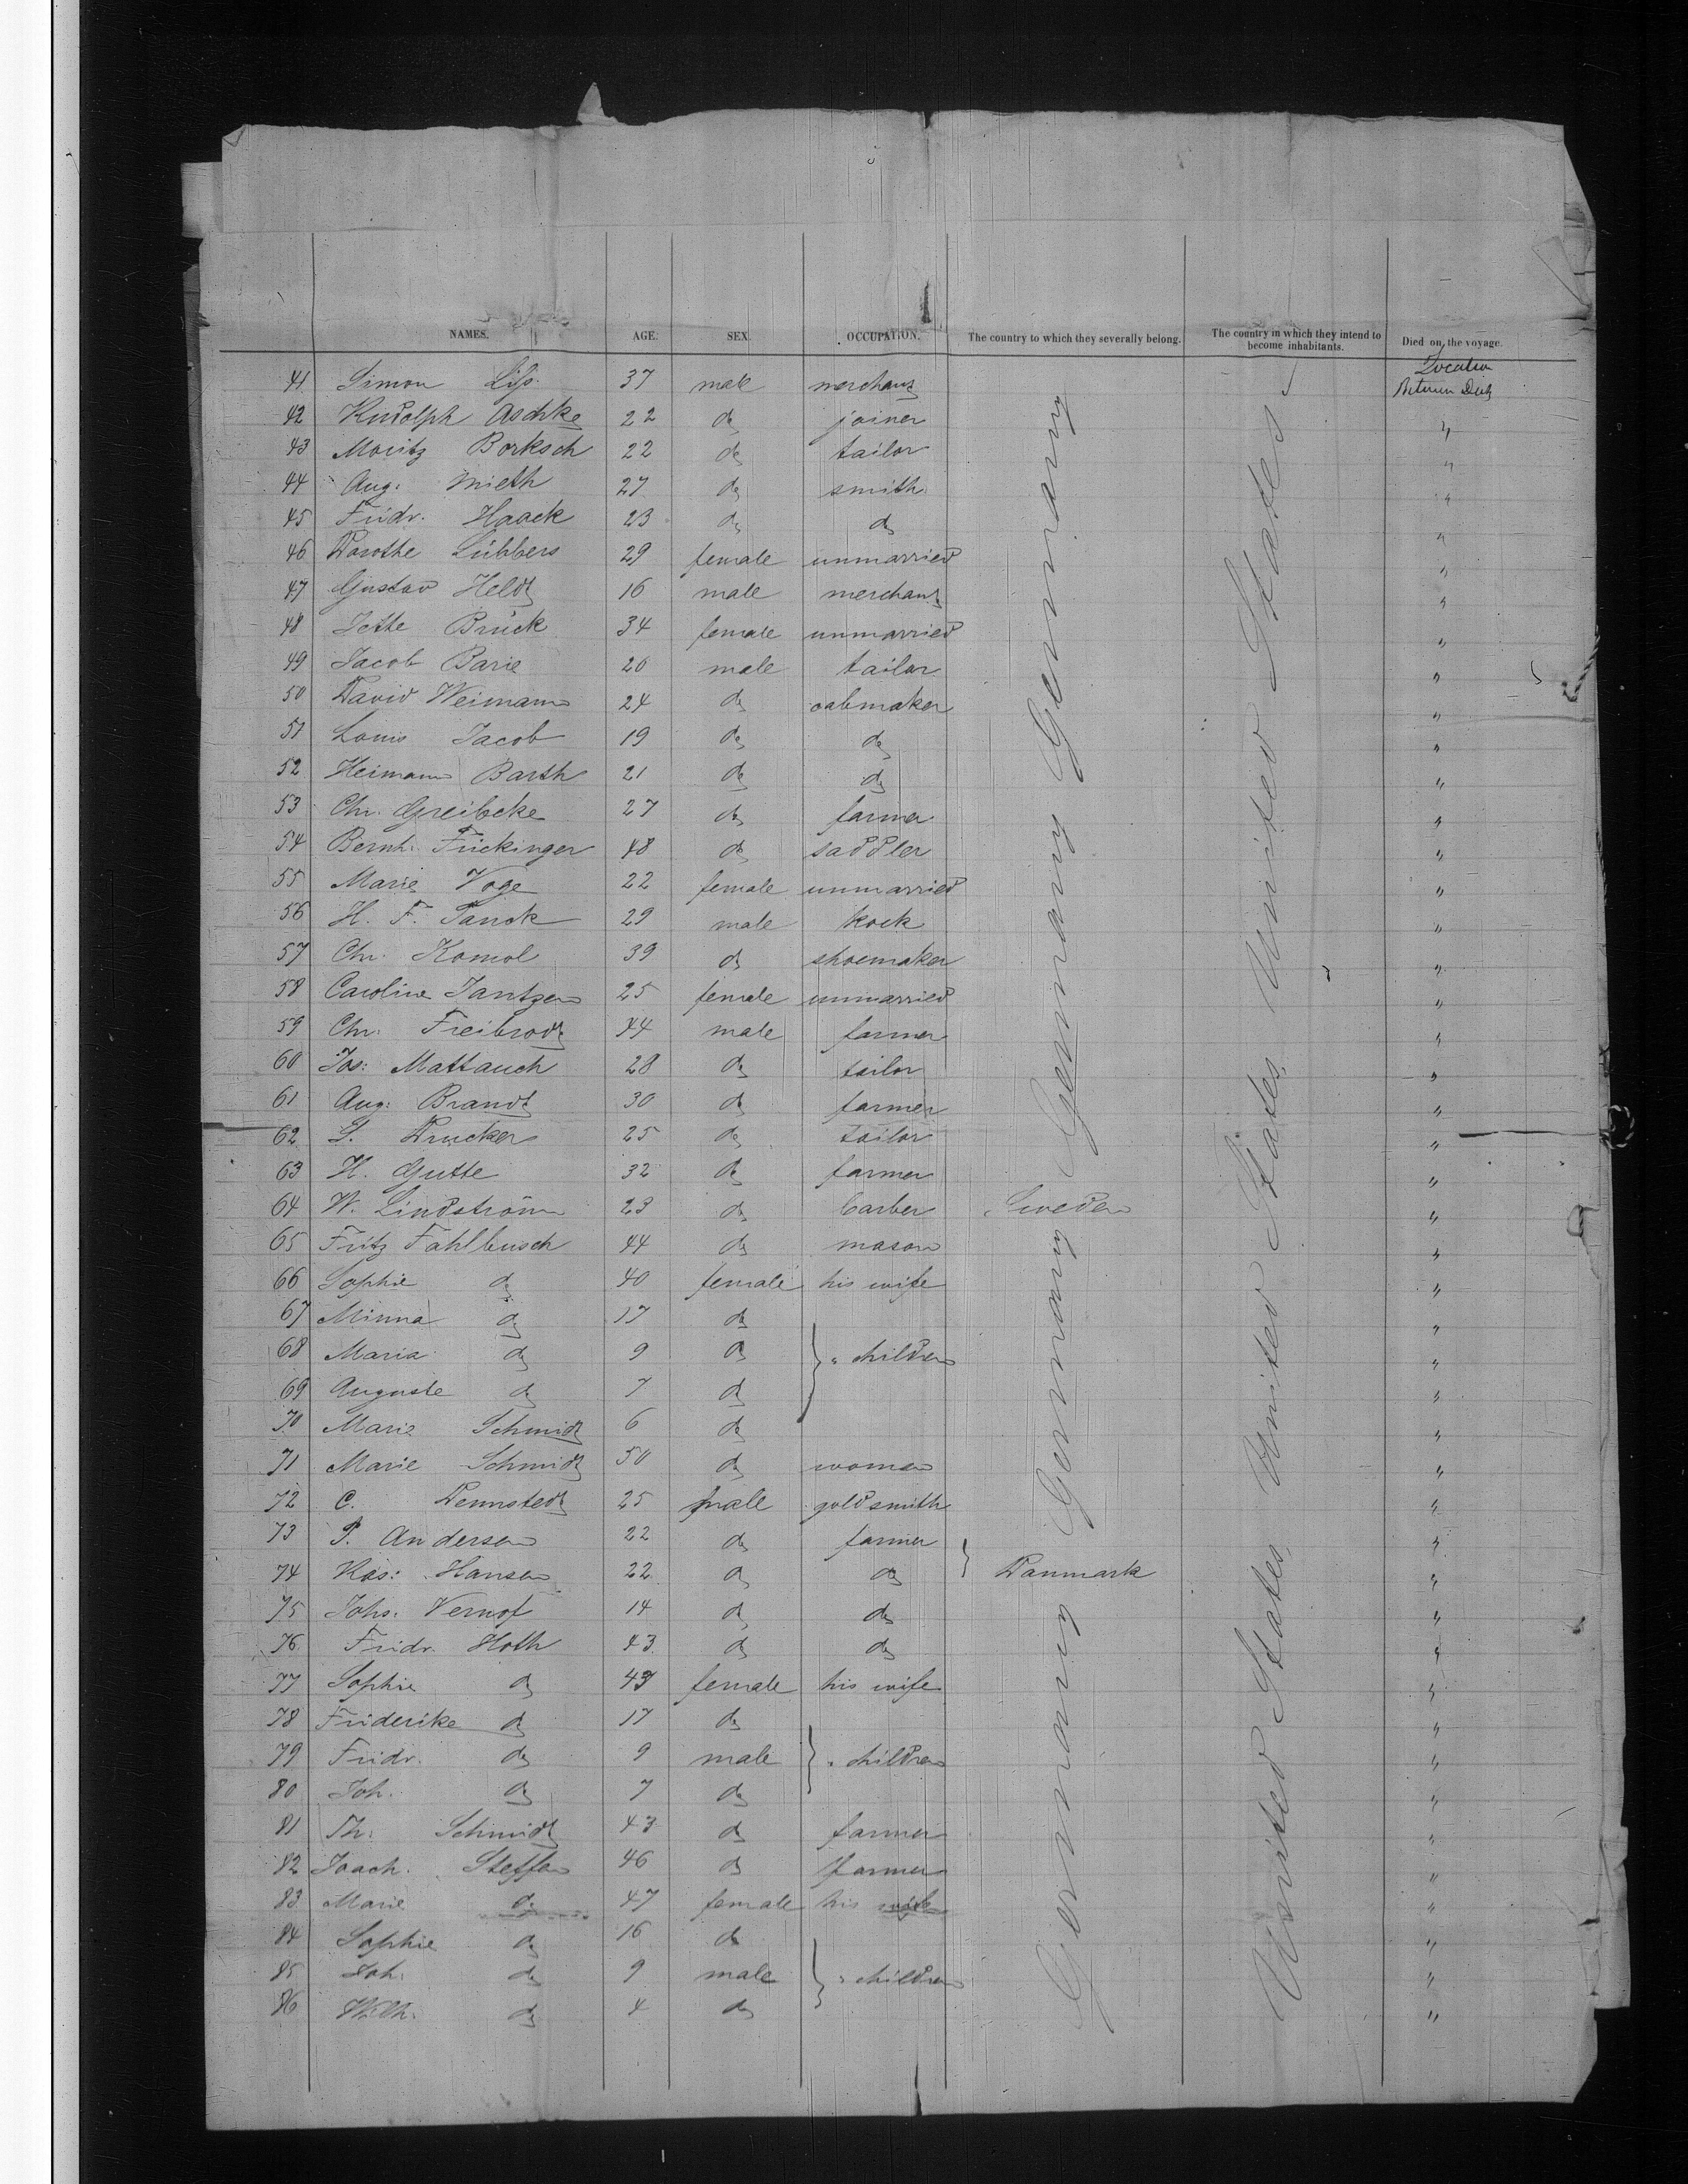 NAMES. AGE. SEX. OCCUPATION. The country to which they severally belong. The country in which they intend to become inhabitants. Died on the voyage.
Location
41 Simon Liss 37 male merchant Between Deck
42 Rudolph Aschke 22 do joiner "
43 Moritz Borksch 22 do tailor "
44 Aug: Mieth 27 do smith "
45 Fridr. Haack 23 do do "
46 Dorothe Lübbers 29 female unmarried "
47 Gustav Heldt 16 male merchant "
48 Jette Brück 34 female unmarried "
49 Jacob Barie 20 male tailor "
50 David Weimann 24 do cabmaker "
51 Louis Jacob 19 do do "
52 Heimann Barth 21 do do "
53 Chr. Greibcke 27 do farmer "
54 Bernh. Frickinger 48 do saddler "
55 Marie Voge 22 female unmarried "
56 H. F. Tanck 29 male kock "
57 Chr. Komol 39 do shoemaker "
58 Caroline Jantzen 25 female unmarried "
59 Chr: Freibrodt 44 male farmer "
60 Jos: Mattauch 28 do tailor "
61 Aug: Brandt 30 do farmer "
62 S. Drucker 25 do tailor "
63 H. Gutte 32 do farmer "
64 W. Lindström 23 do barber Sweden "
65 Fritz Fahlbusch 44 do mason "
66 Sophie do 40 female his wife "
67 Minna do 17 do "
68 Maria do 9 do " children "
69 Auguste do 7 do "
70 Marie Schmidt 6 do "
71 Marie Schmidt 50 do woman "
72 C. Dennstedt 25 male goldsmith "
73 P. Andersen 22 do farmer "
74 Ras: Hansen 22 do do Danmark "
75 Johs: Vernof 14 do do "
76 Fridr. Hoth 43 do do "
77 Sophie do 43 female his wife "
78 Friderike do 17 do "
79 Fridr. do 9 male " children "
80 Joh. do 7 do "
81 Th: Schmidt 43 do farmer "
82 Joach. Steffen 46 do farmer "
83 Marie do 47 female his wife "
84 Sophie do 16 do "
85 Joh: do 9 male " children "
86 Wilh. do 4 do "
Germany Germany Germany Germany Germany
United States, United States, United States